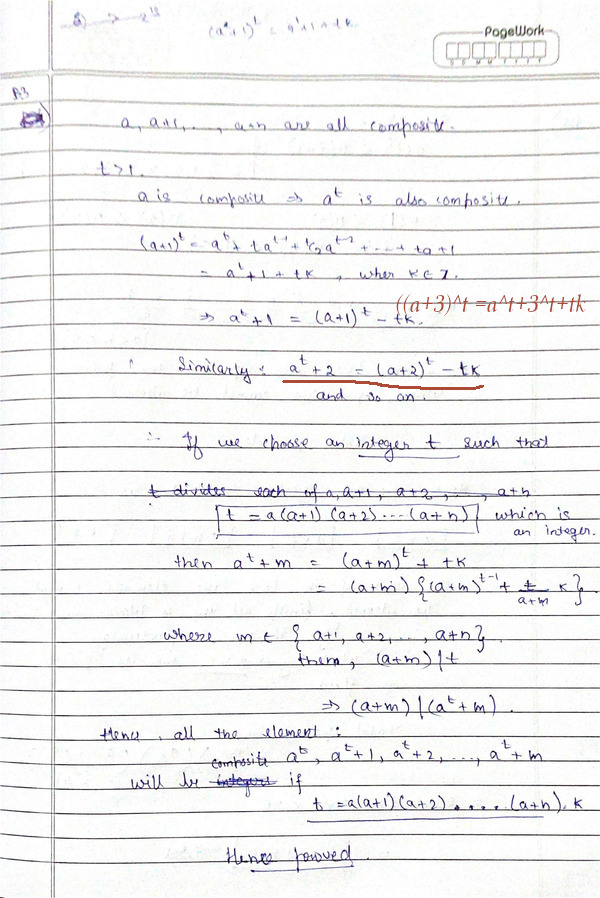 (a^t+1)^t = a^t+1+tk
PageWork
D D M M Y Y Y Y
A3
a, a+1, ..., a+n are all composite.
t>1.
a is composite ⇒ a^t is also composite.
(a+1)^t = a^t + ta^(t-1) + tC2 a^(t-2) + ... + ta+1
= a^t+1+tk, wher k∈Z.
((a+3)^t =a^t+3^t+tk
⇒ a^t+1 = (a+1)^t - tk.
Similarly: a^t+2 = (a+2)^t - tk
and so on.
∴ If we choose an integer t such that
t divides each of a, a+1, a+2, ..., a+n
t = a(a+1)(a+2)...(a+n) which is
an integer.
then a^t+m = (a+m)^t + tk
= (a+m) {(a+m)^(t-1) + t/(a+m) k}
where m t {a+1, a+2, .., a+n}.
them, (a+m)|t
⇒ (a+m)|(a^t+m).
Hence, all the element:
composite a^t, a^t+1, a^t+2, ..., a^t+m
will be integers if
t = a(a+1)(a+2)....(a+n).k
Hence proved.